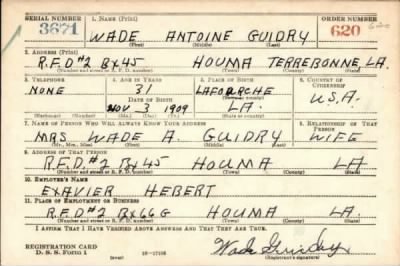 SERIAL NUMBER 1. NAME (Print) ORDER NUMBER
3671 WADE ANTOINE GUIDRY 620
(First) (Middle) (Last)
2. ADDRESS (Print)
R.F.D #2 Bx45 HOUMA TERREBONNE, LA.
(Number and street or R. F. D. number) (Town) (County) (State)
3. TELEPHONE 4. AGE IN YEARS 5. PLACE OF BIRTH 6. COUNTRY OF CITIZENSHIP
NONE 31 LAFOURCHE U.S.A.
DATE OF BIRTH (Town or county)
NOV 3 1909 LA.
(Mo.) (Day) (Yr.) (State or country)
7. NAME OF PERSON WHO WILL ALWAYS KNOW YOUR ADDRESS 8. RELATIONSHIP OF THAT PERSON
MRS WADE A. GUIDRY WIFE
(Mr., Mrs., Miss) (First) (Middle) (Last)
9. ADDRESS OF THAT PERSON
R.F.D. #2 Bx45 HOUMA LA
(Number and street or R. F. D. number) (Town) (County) (State)
10. EMPLOYER'S NAME
EXAVIER HEBERT
11. PLACE OF EMPLOYMENT OR BUSINESS
R.F.D #2 Bx66G HOUMA LA.
(Number and street or R. F. D. number) (Town) (County) (State)
I AFFIRM THAT I HAVE VERIFIED ABOVE ANSWERS AND THAT THEY ARE TRUE.
REGISTRATION CARD
D. S. S. Form 1
Wade Guidry
(Registrant's signature)